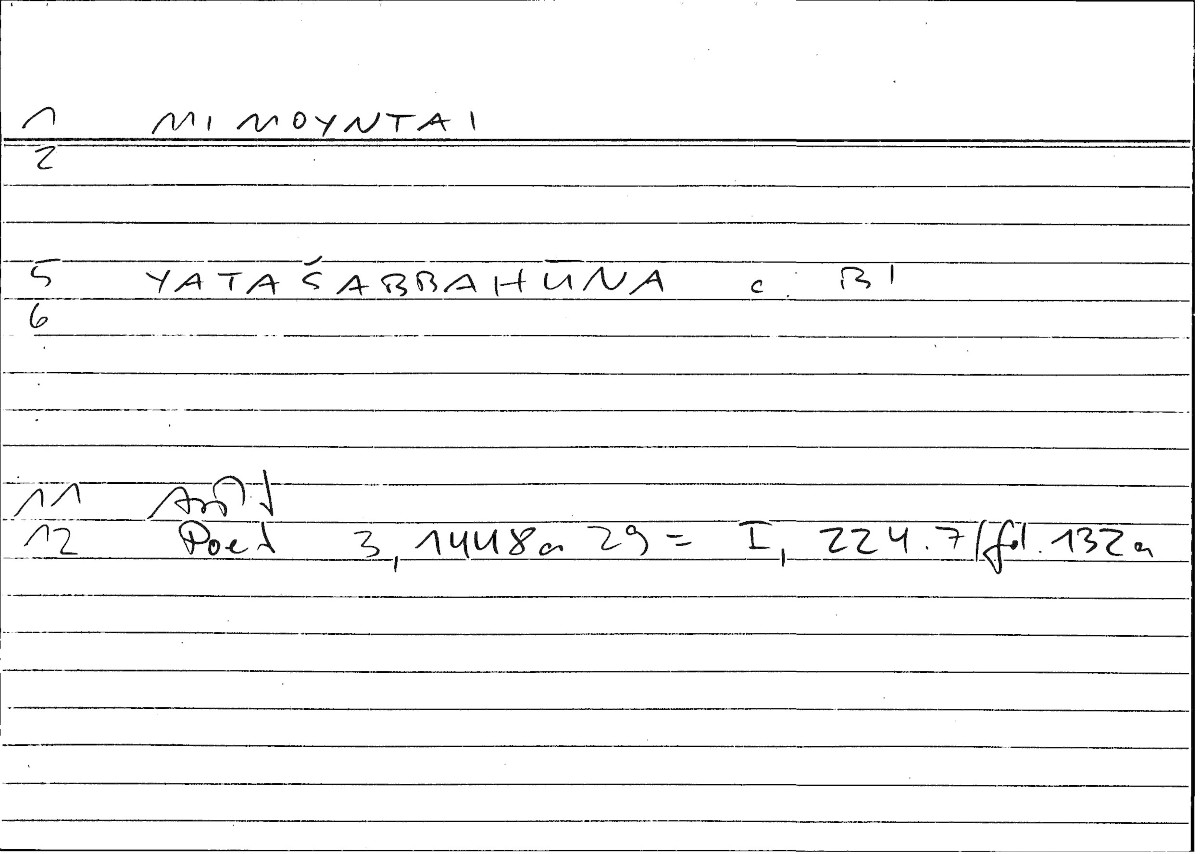 1 MIMOYNTAI
2
5 YATAŠABBAHŪNA c. BI
6
11 Arist
12 Poet 3,1448a 29 = I, 224.7/fol. 132a